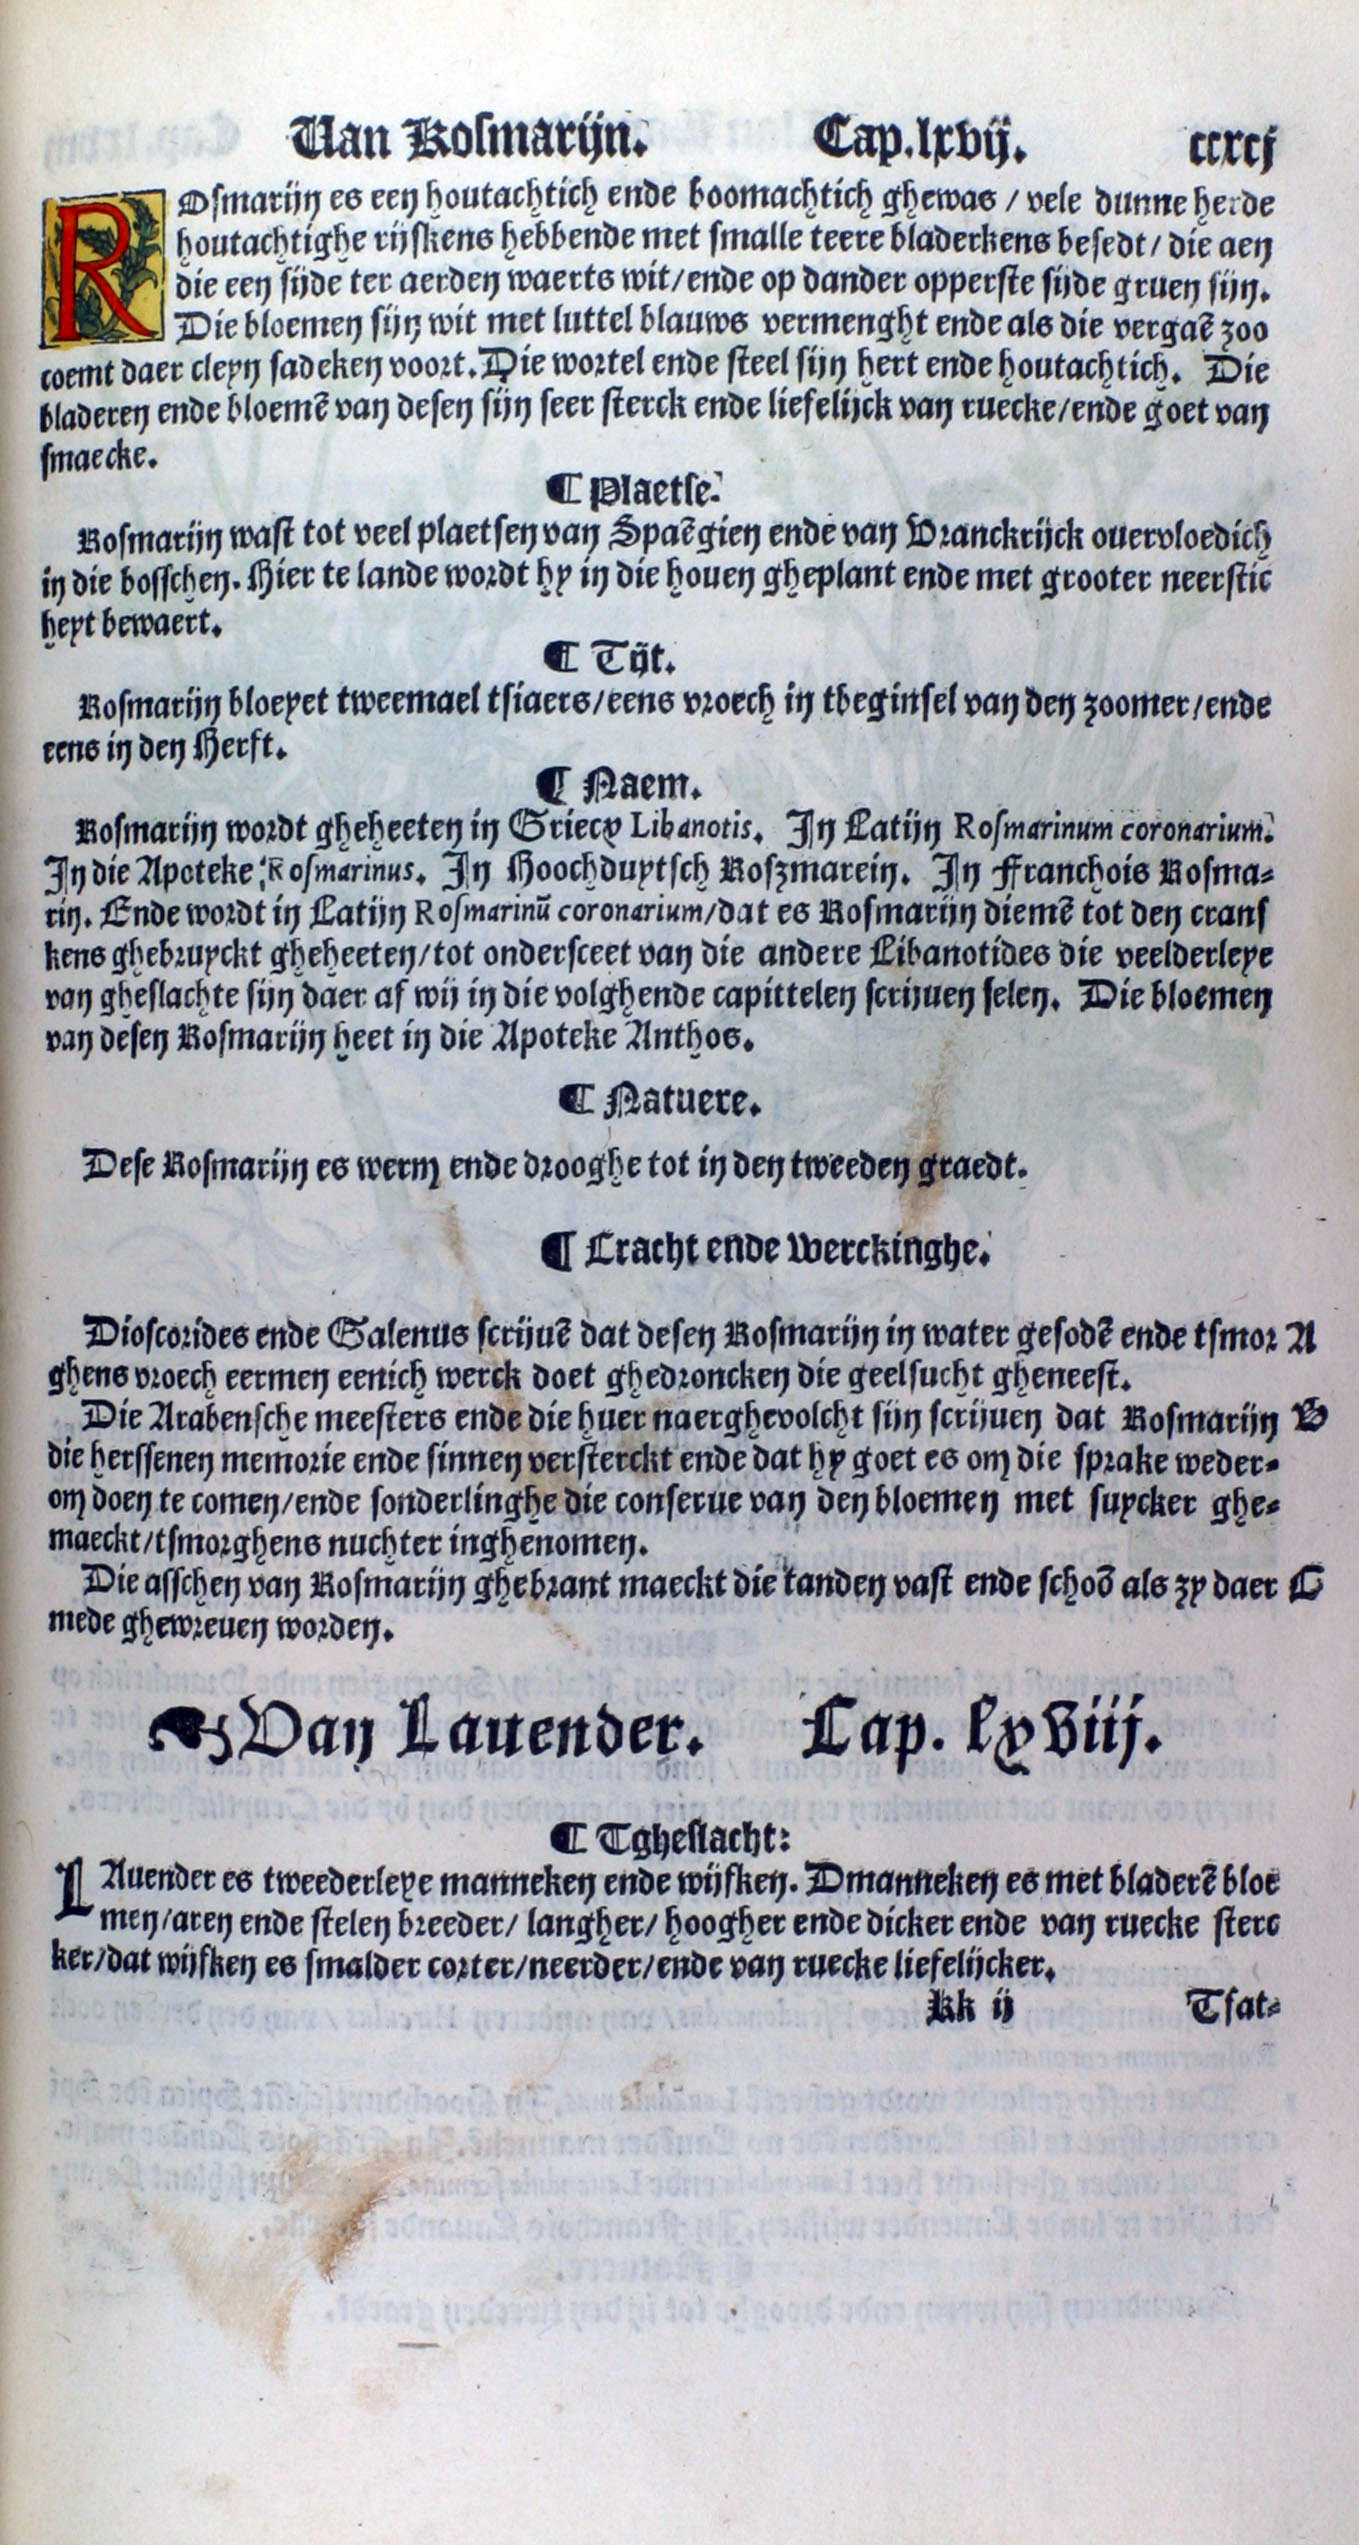 Van Rosmarijn. Cap.lxvij. ccxcj
ROsmarijn es een houtachtich ende boomachtich ghewas / vele dunne herde
houtachtighe rijskens hebbende met smalle teere bladerkens besedt / die aen
die een sijde ter aerden waerts wit / ende op dander opperste sijde gruen sijn.
Die bloemen sijn wit met luttel blauws vermenght ende als die vergaē zoo
coemt daer cleyn sadeken voort. Die wortel ende steel sijn hert ende houtachtich. Die
bladeren ende bloemē van desen sijn seer sterck ende liefelijck van ruecke / ende goet van
smaecke.
¶ Plaetse.
Rosmarijn wast tot veel plaetsen van Spaēgien ende van Vranckrijck ouervloedich
in die bosschen. Hier te lande wordt hy in die houen gheplant ende met grooter neerstic
heyt bewaert.
¶ Tijt.
Rosmarijn bloeyet tweemael tsiaers / eens vroech in tbeginsel van den zoomer / ende
eens in den Herfst.
¶ Naem.
Rosmarijn wordt gheheeten in Griecx Libanotis. In Latijn Rosmarinum coronarium.
In die Apoteke Rosmarinus. In Hoochduytsch Roszmarein. In Franchois Rosma-
rin. Ende wordt in Latijn Rosmarinū coronarium / dat es Rosmarijn diemē tot den crans
kens ghebruyckt gheheeten / tot ondersceet van die andere Libanotides die veelderleye
van gheslachte sijn daer af wij in die volghende capittelen scrijuen selen. Die bloemen
van desen Rosmarijn heet in die Apoteke Anthos.
¶ Natuere.
Dese Rosmarijn es werm ende drooghe tot in den tweeden graedt.
¶ Cracht ende Werckinghe.
Dioscorides ende Galenus scrijuē dat desen Rosmarijn in water gesodē ende tsmor A
ghens vroech eermen eenich werck doet ghedroncken die geelsucht gheneest.
Die Arabensche meesters ende die huer naerghevolcht sijn scrijuen dat Rosmarijn B
die herssenen memorie ende sinnen versterckt ende dat hy goet es om die sprake weder-
om doen te comen / ende sonderlinghe die conserue van den bloemen met suycker ghe-
maeckt / tsmorghens nuchter inghenomen.
Die asschen van Rosmarijn ghebrant maeckt die tanden vast ende schoō als zy daer C
mede ghewreuen worden.
Van Lauender. Cap. lxviij.
¶ Tgheslacht:
LAuender es tweederleye manneken ende wijfken. Dmanneken es met bladerē bloe
men / aren ende stelen breeder / langher / hoogher ende dicker ende van ruecke sterc
ker / dat wijfken es smalder corter / neerder / ende van ruecke liefelijcker.
Kk ij Tsat-